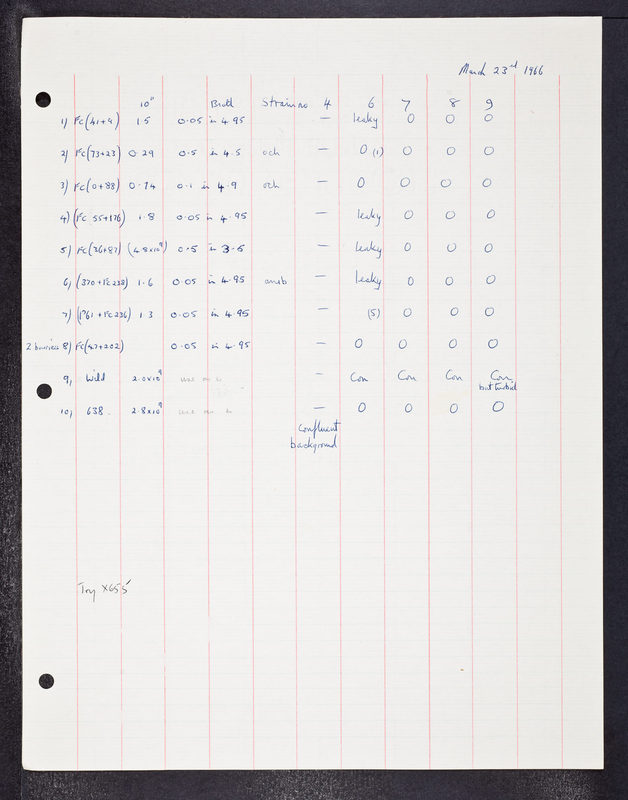 March 23rd 1966
10" Broth Strain no 4 6 7 8 9
1) FC(41+9) 1.5 0.05 in 4.95 — leaky 0 0 0
2) FC(73+23) 0.29 0.5 in 4.5 och — 0 (1) 0 0 0
3) FC(0+88) 0.74 0.1 in 4.9 och — 0 0 0 0
4) (FC 55+176) 1.8 0.05 in 4.95 — leaky 0 0 0
5) FC(36+87) (4.8x10⁹) 0.5 in 3.5 — leaky 0 0 0
6) (370+FC238) 1.6 0.05 in 4.95 amb — leaky 0 0 0
7) (P61+FC236) 1.3 0.05 in 4.95 — (5) 0 0 0
2 barriers 8) FC(47+202) 0.05 in 4.95 — 0 0 0 0
9) Wild 2.0x10⁹ — Con Con Con Con
but turbid
10) 638 2.8x10⁹ — 0 0 0 0
Confluent
background
Try X655